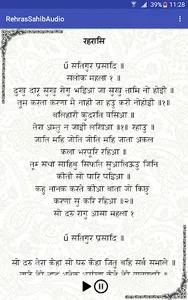 11:28
RehrasSahibAudio
रहरासि
ੴ सतिगुर प्रसादि ॥
सलोक महला १ ॥
दुखु दारू सुखु रोगु भइआ जा सुखु तामि न होई ॥
तूं करता करणा मै नाही जा हउ करी न होई ॥१॥
बलिहारी कुदरति वसिआ ॥
तेरा अंतु न जाई लखिआ ॥१॥ रहाउ ॥
जाति महि जोति जोति महि जाता अकल
कला भरपूरि रहिआ ॥
तूं सचा साहिबु सिफति सुआल्हिउ जिनि
कीती सो पारि पइआ ॥
कहु नानक करते कीआ बाता जो किछु
करणा सु करि रहिआ ॥२॥
सो दरु रागु आसा महला १
ੴ सतिगुर प्रसादि ॥
सो दरु तेरा केहा सो घरु केहा जितु बहि सरब समाले ॥